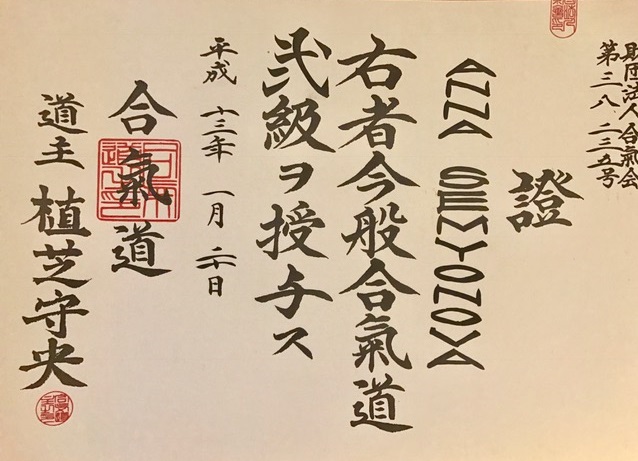 財団法人合氣会
第三八二三五号
證
ANNA SEMYONOVA
右者今般合氣道
弐級ヲ授与ス
平成 十三年 一月 二十日
合氣道
道主 植芝守央